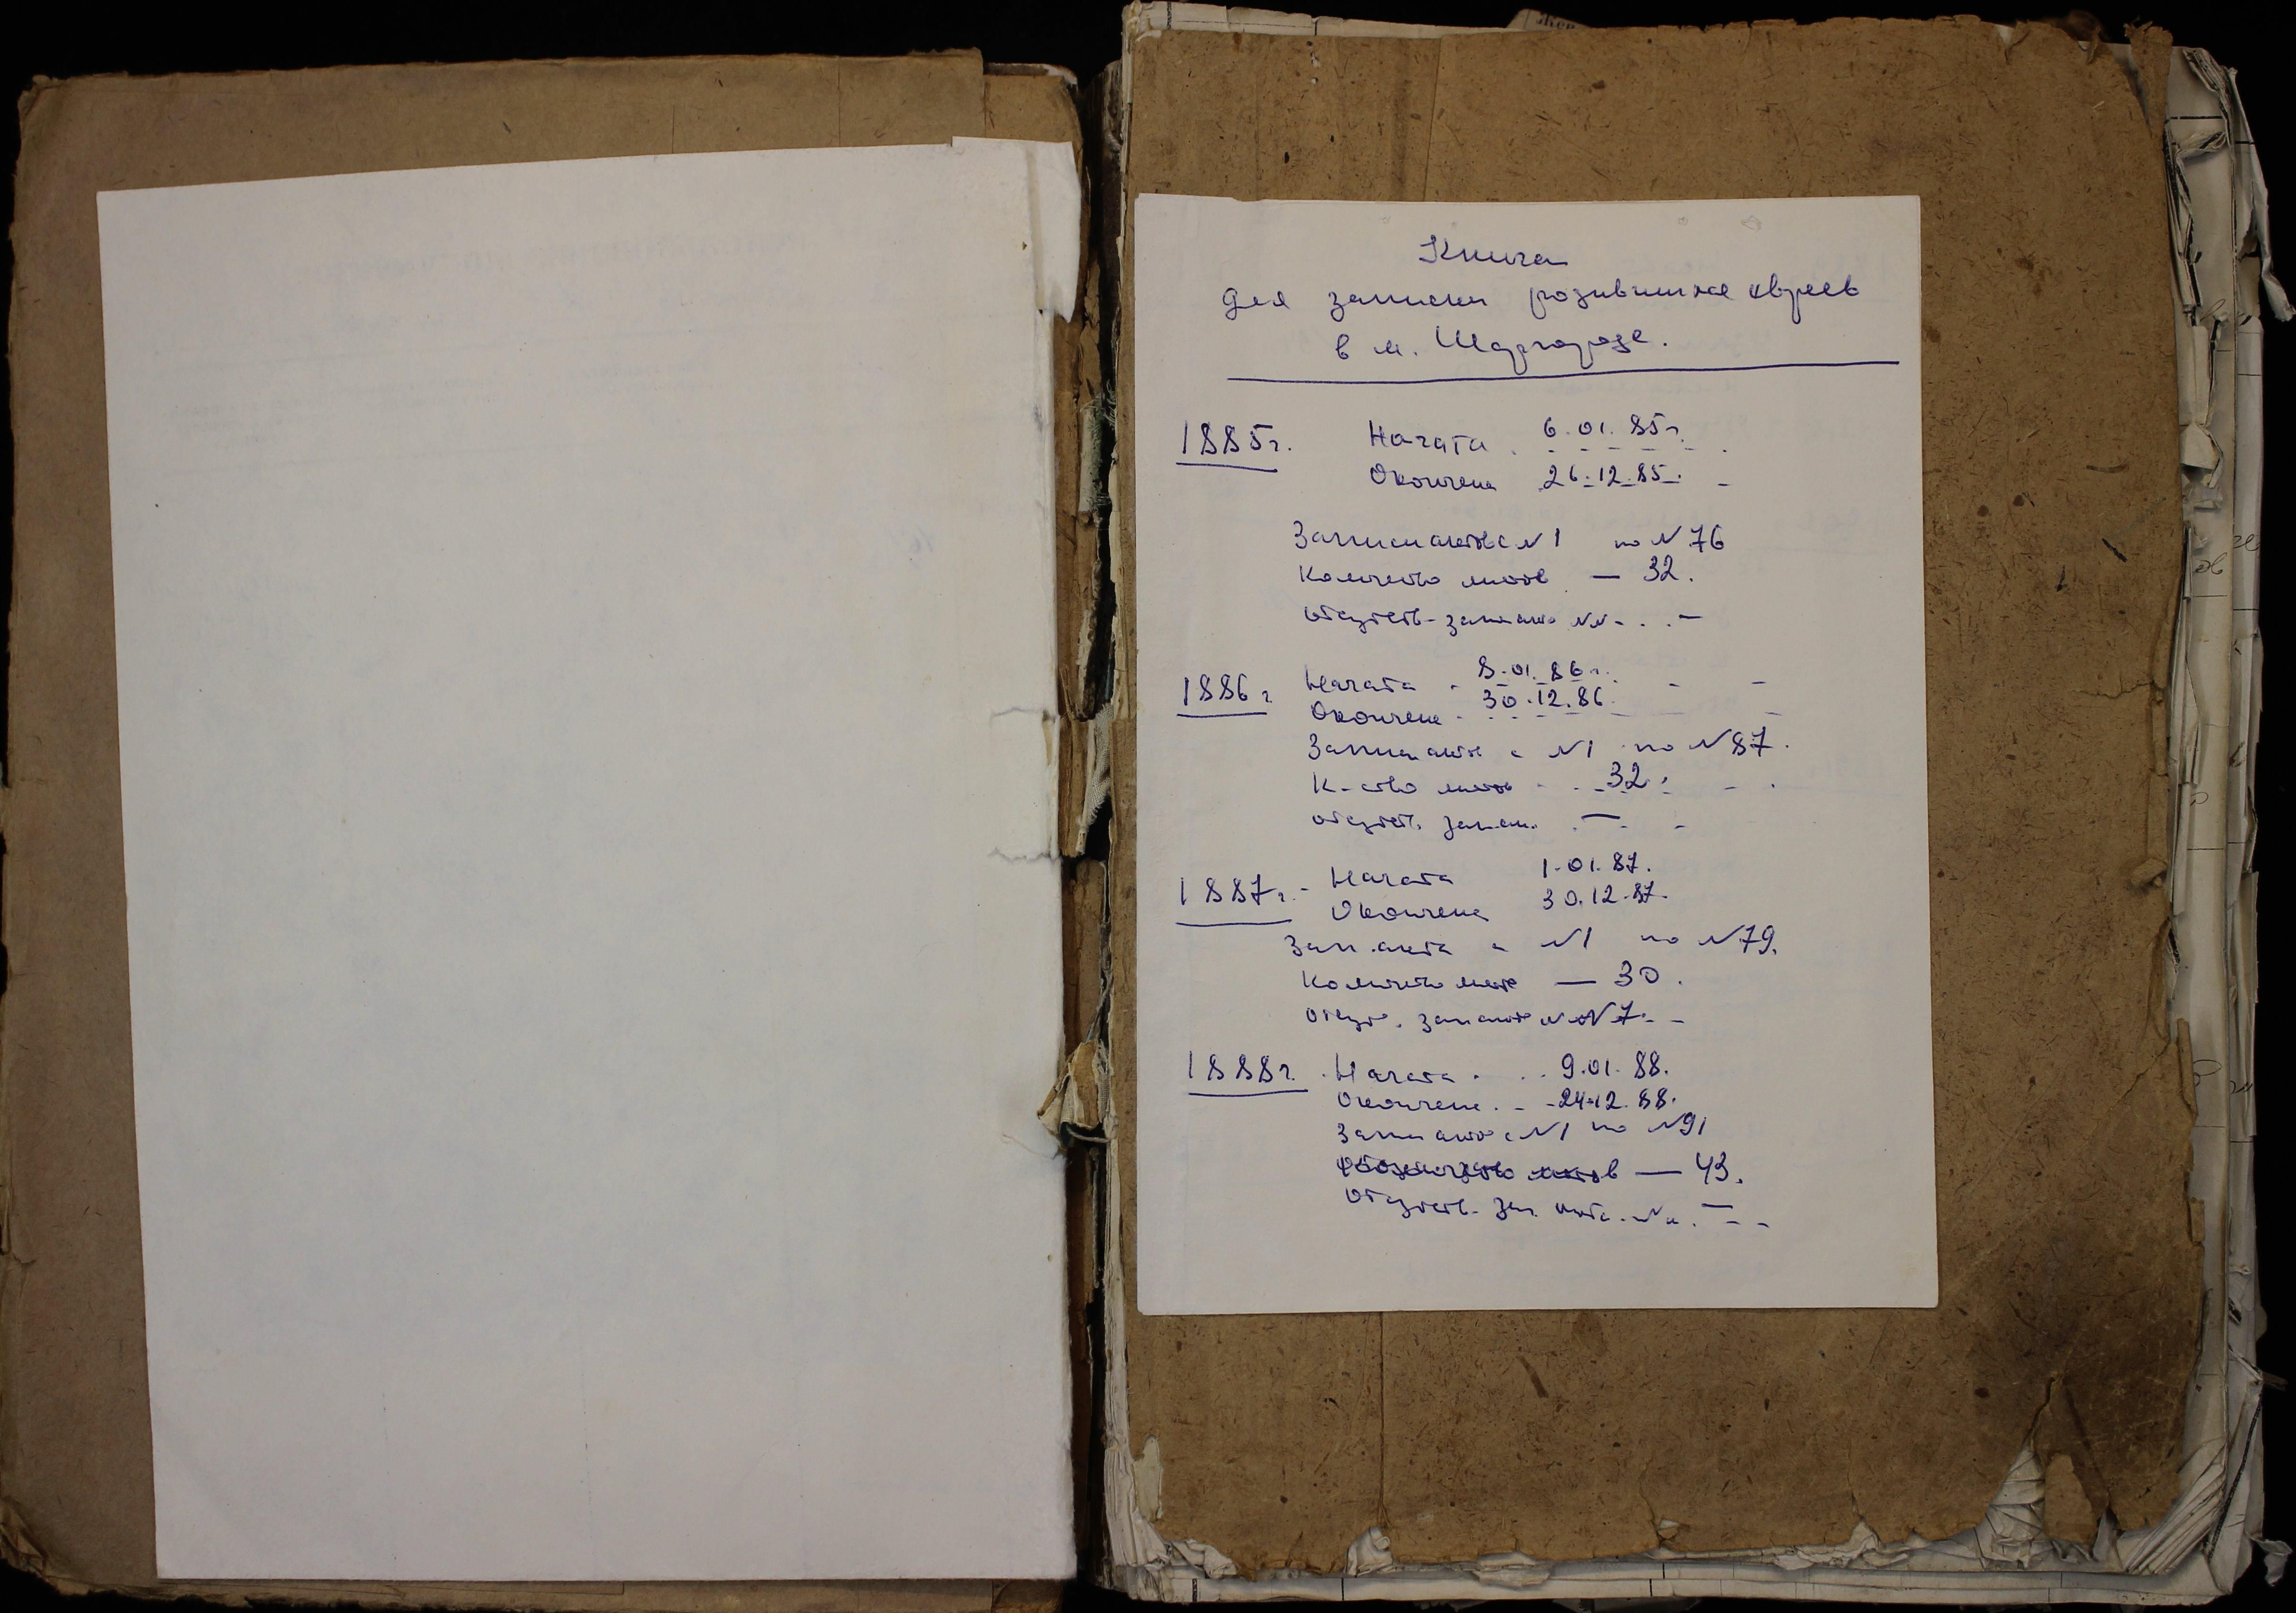 Книга
для записи родившихся евреев
в м. Шаргороде.
1885г. Начата 6.01.85г.
Окончена 26.12.85.
Записи актов с №1 по №76
Количество листов — 32.
отсутств. запи актов №№ —
1886г. Начата 8.01.86г.
Окончена 30.12.86.
Записи актов с №1 по №87.
К-ство листов 32.
отсутст. запи ак. —
1887г. Начата 1.01.87.
Окончена 30.12.87.
Зап. акта с №1 по №79.
Количество листов — 30.
Отсут. зап актов №№ 7.
1888г. Начата 9.01.88.
Окончена 24.12.88.
Запи актов с №1 по №91
— 43.
Отсутств. зап. акта №№ —